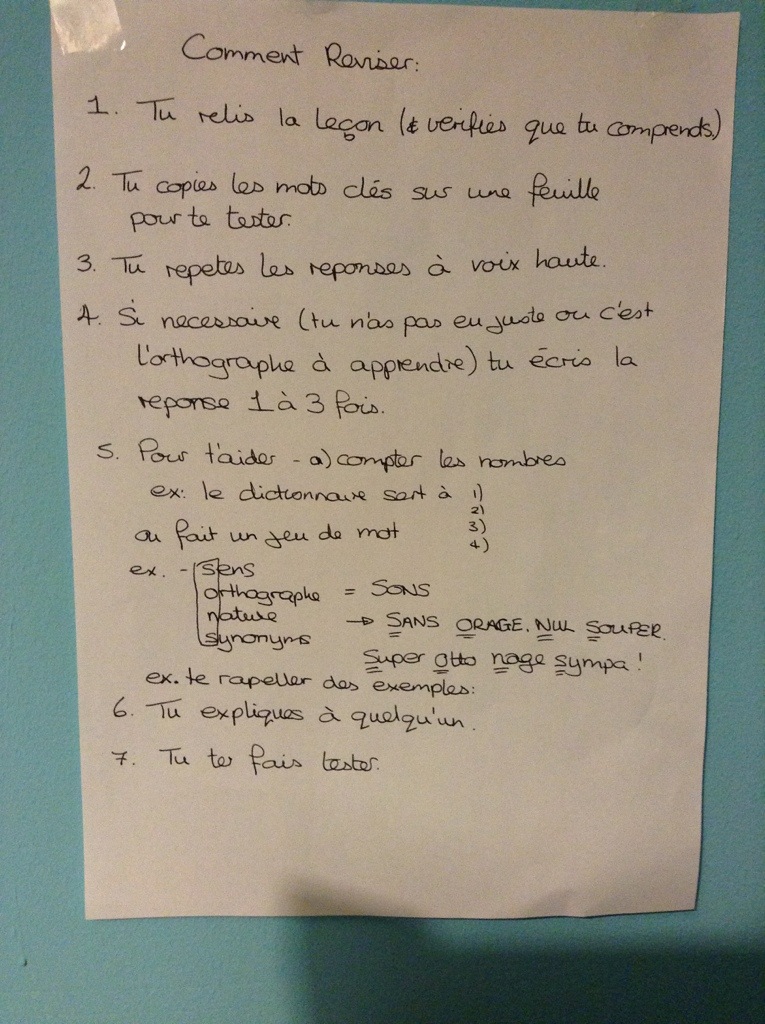 Comment Reviser:
1. Tu relis la leçon (& verifies que tu comprends.)
2. Tu copies les mots clés sur une feuille
pour te tester.
3. Tu repetes les reponses à voix haute.
4. Si necessaire (tu n'as pas eu juste ou c'est
l'orthographe à apprendre) tu écris la
reponse 1 à 3 fois.
5. Pour t'aider - a) compter les nombres
ex: le dictionnaire sert à 1)
2)
ou fait un jeu de mot 3)
4)
ex. - sens
orthographe = SONS
nature → SANS ORAGE. NUL SOUPER.
synonyms
Super Otto nage sympa!
ex. te rapeller des exemples:
6. Tu expliques à quelqu'un.
7. Tu te fais tester.